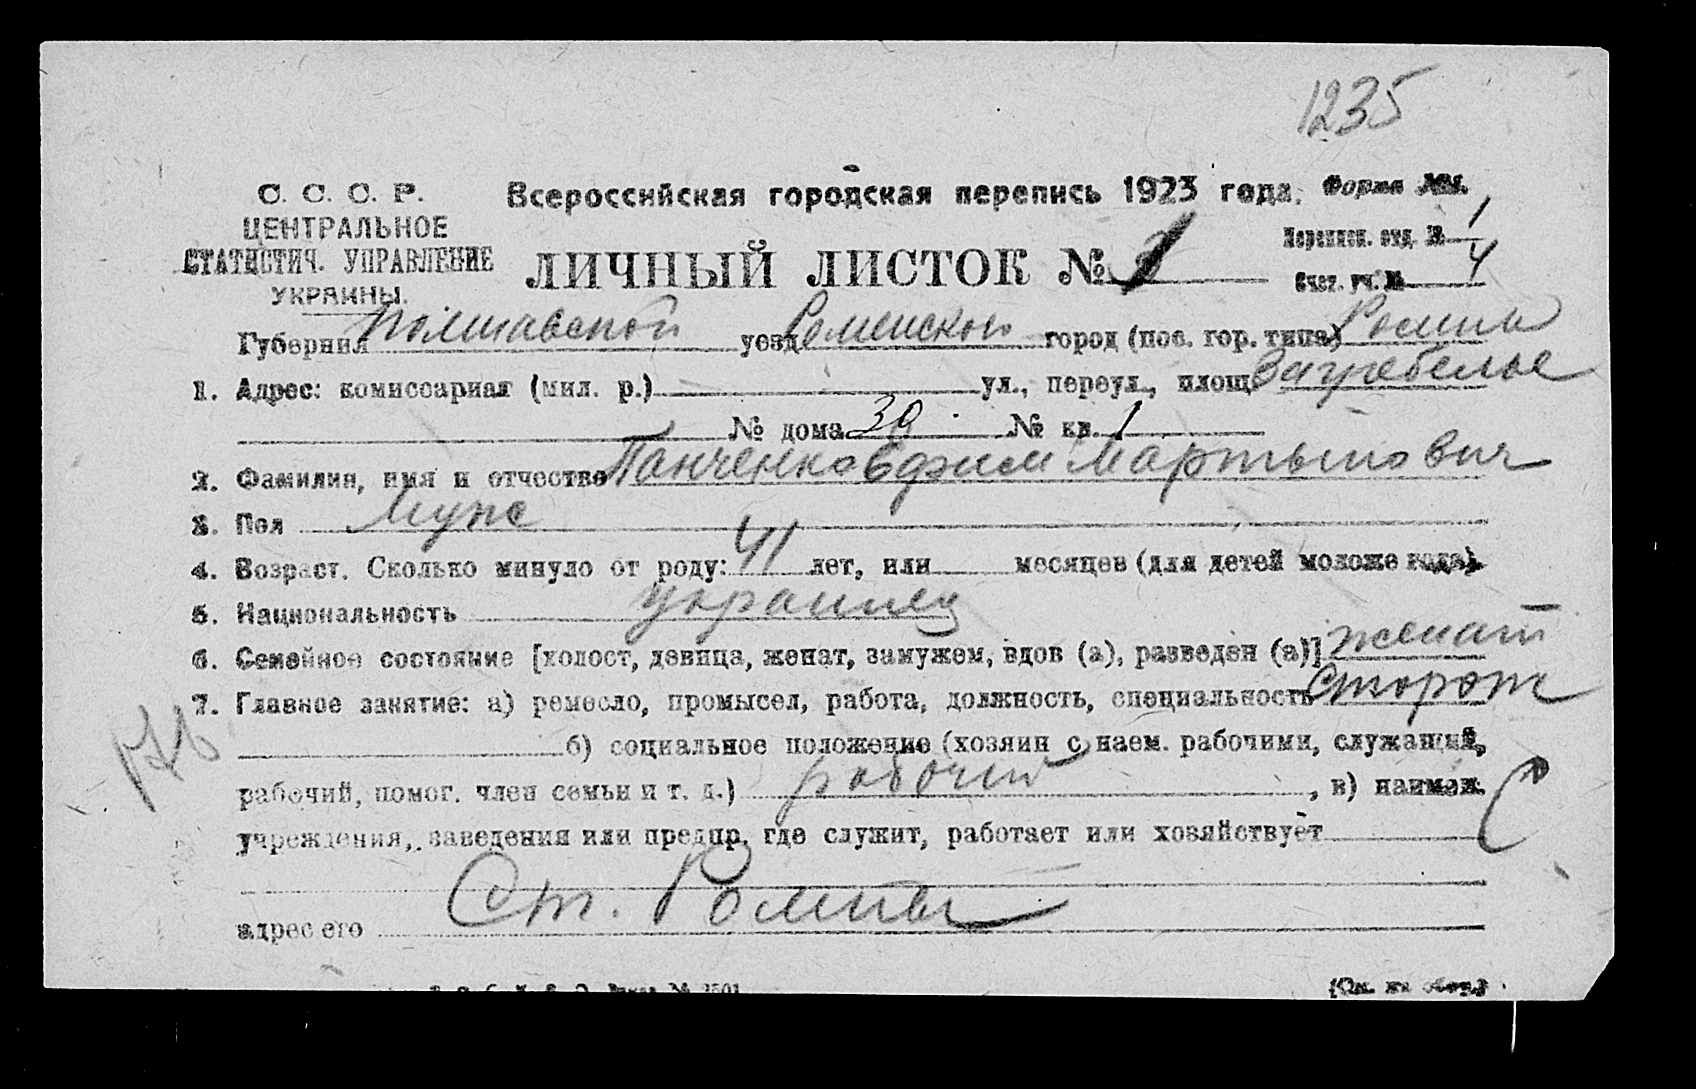 1235
С. С. С. Р.
ЦЕНТРАЛЬНОЕ
СТАТИСТИЧ. УПРАВЛЕНИЕ
УКРАИНЫ.
Всероссийская городская перепись 1923 года.
Форма №1.
ЛИЧНЫЙ ЛИСТОК №
Переписн. отд. № 1
Счет. уч. № 4
Губерния Полтавской уезд Роменской город (пос. гор. типа) Ромны
1. Адрес: комиссариат (мил. р.) ул., переул., площ. Загребелье
№ дома 30 № кв. 1
2. Фамилия, имя и отчество Панченко Ефим Мартынович
3. Пол Муж
4. Возраст. Сколько минуло от роду: 41 лет, или месяцев (для детей моложе года).
5. Национальность украинец
6. Семейное состояние [холост, девица, женат, замужем, вдов (а), разведен (а)] женат
7. Главное занятие: а) ремесло, промысел, работа, должность, специальность Сторож
176
б) социальное положение (хозяин с наем. рабочими, служащий,
рабочий, помог. член семьи и т. д.) рабочий, в) наимен.
учреждения, заведения или предпр. где служит, работает или хозяйствует
Ст. Ромны
адрес его
(См. на обор.)